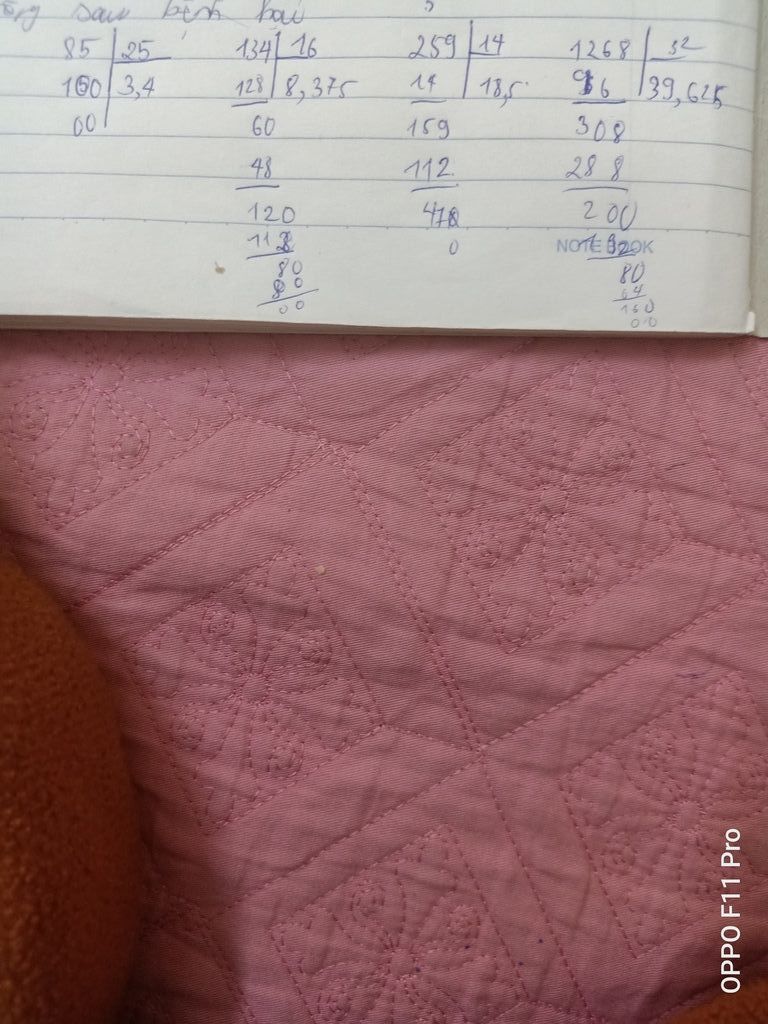 sau bệnh
85 25 134 16 259 14 1268 32
100 3,4 128 8,375 14 18,5 96 39,625
00 60 159 308
48 112 288
120 470 200
112 0 NOTEBOOK 192
80 80
80 64
00 160
00
OPPO F11 Pro